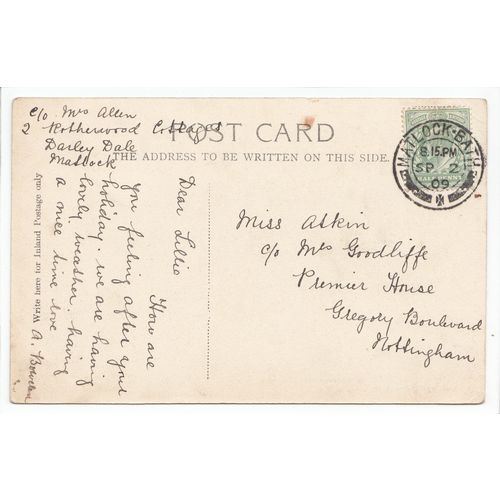 c/o Mrs Allen
2 Rotherwood Cottages
Darley Dale
Matlock
POST CARD
THE ADDRESS TO BE WRITTEN ON THIS SIDE.
Write here for Inland Postage only
Dear Lillie
How are
you feeling after your
holiday. we are having
lovely weather. having
a nice time love
A. Bowden
MATLOCK-BATH
8.15 PM
SP 2
09
HALF PENNY
Miss Askin
c/o Mrs Goodliffe
Premier House
Gregory Boulevard
Nottingham